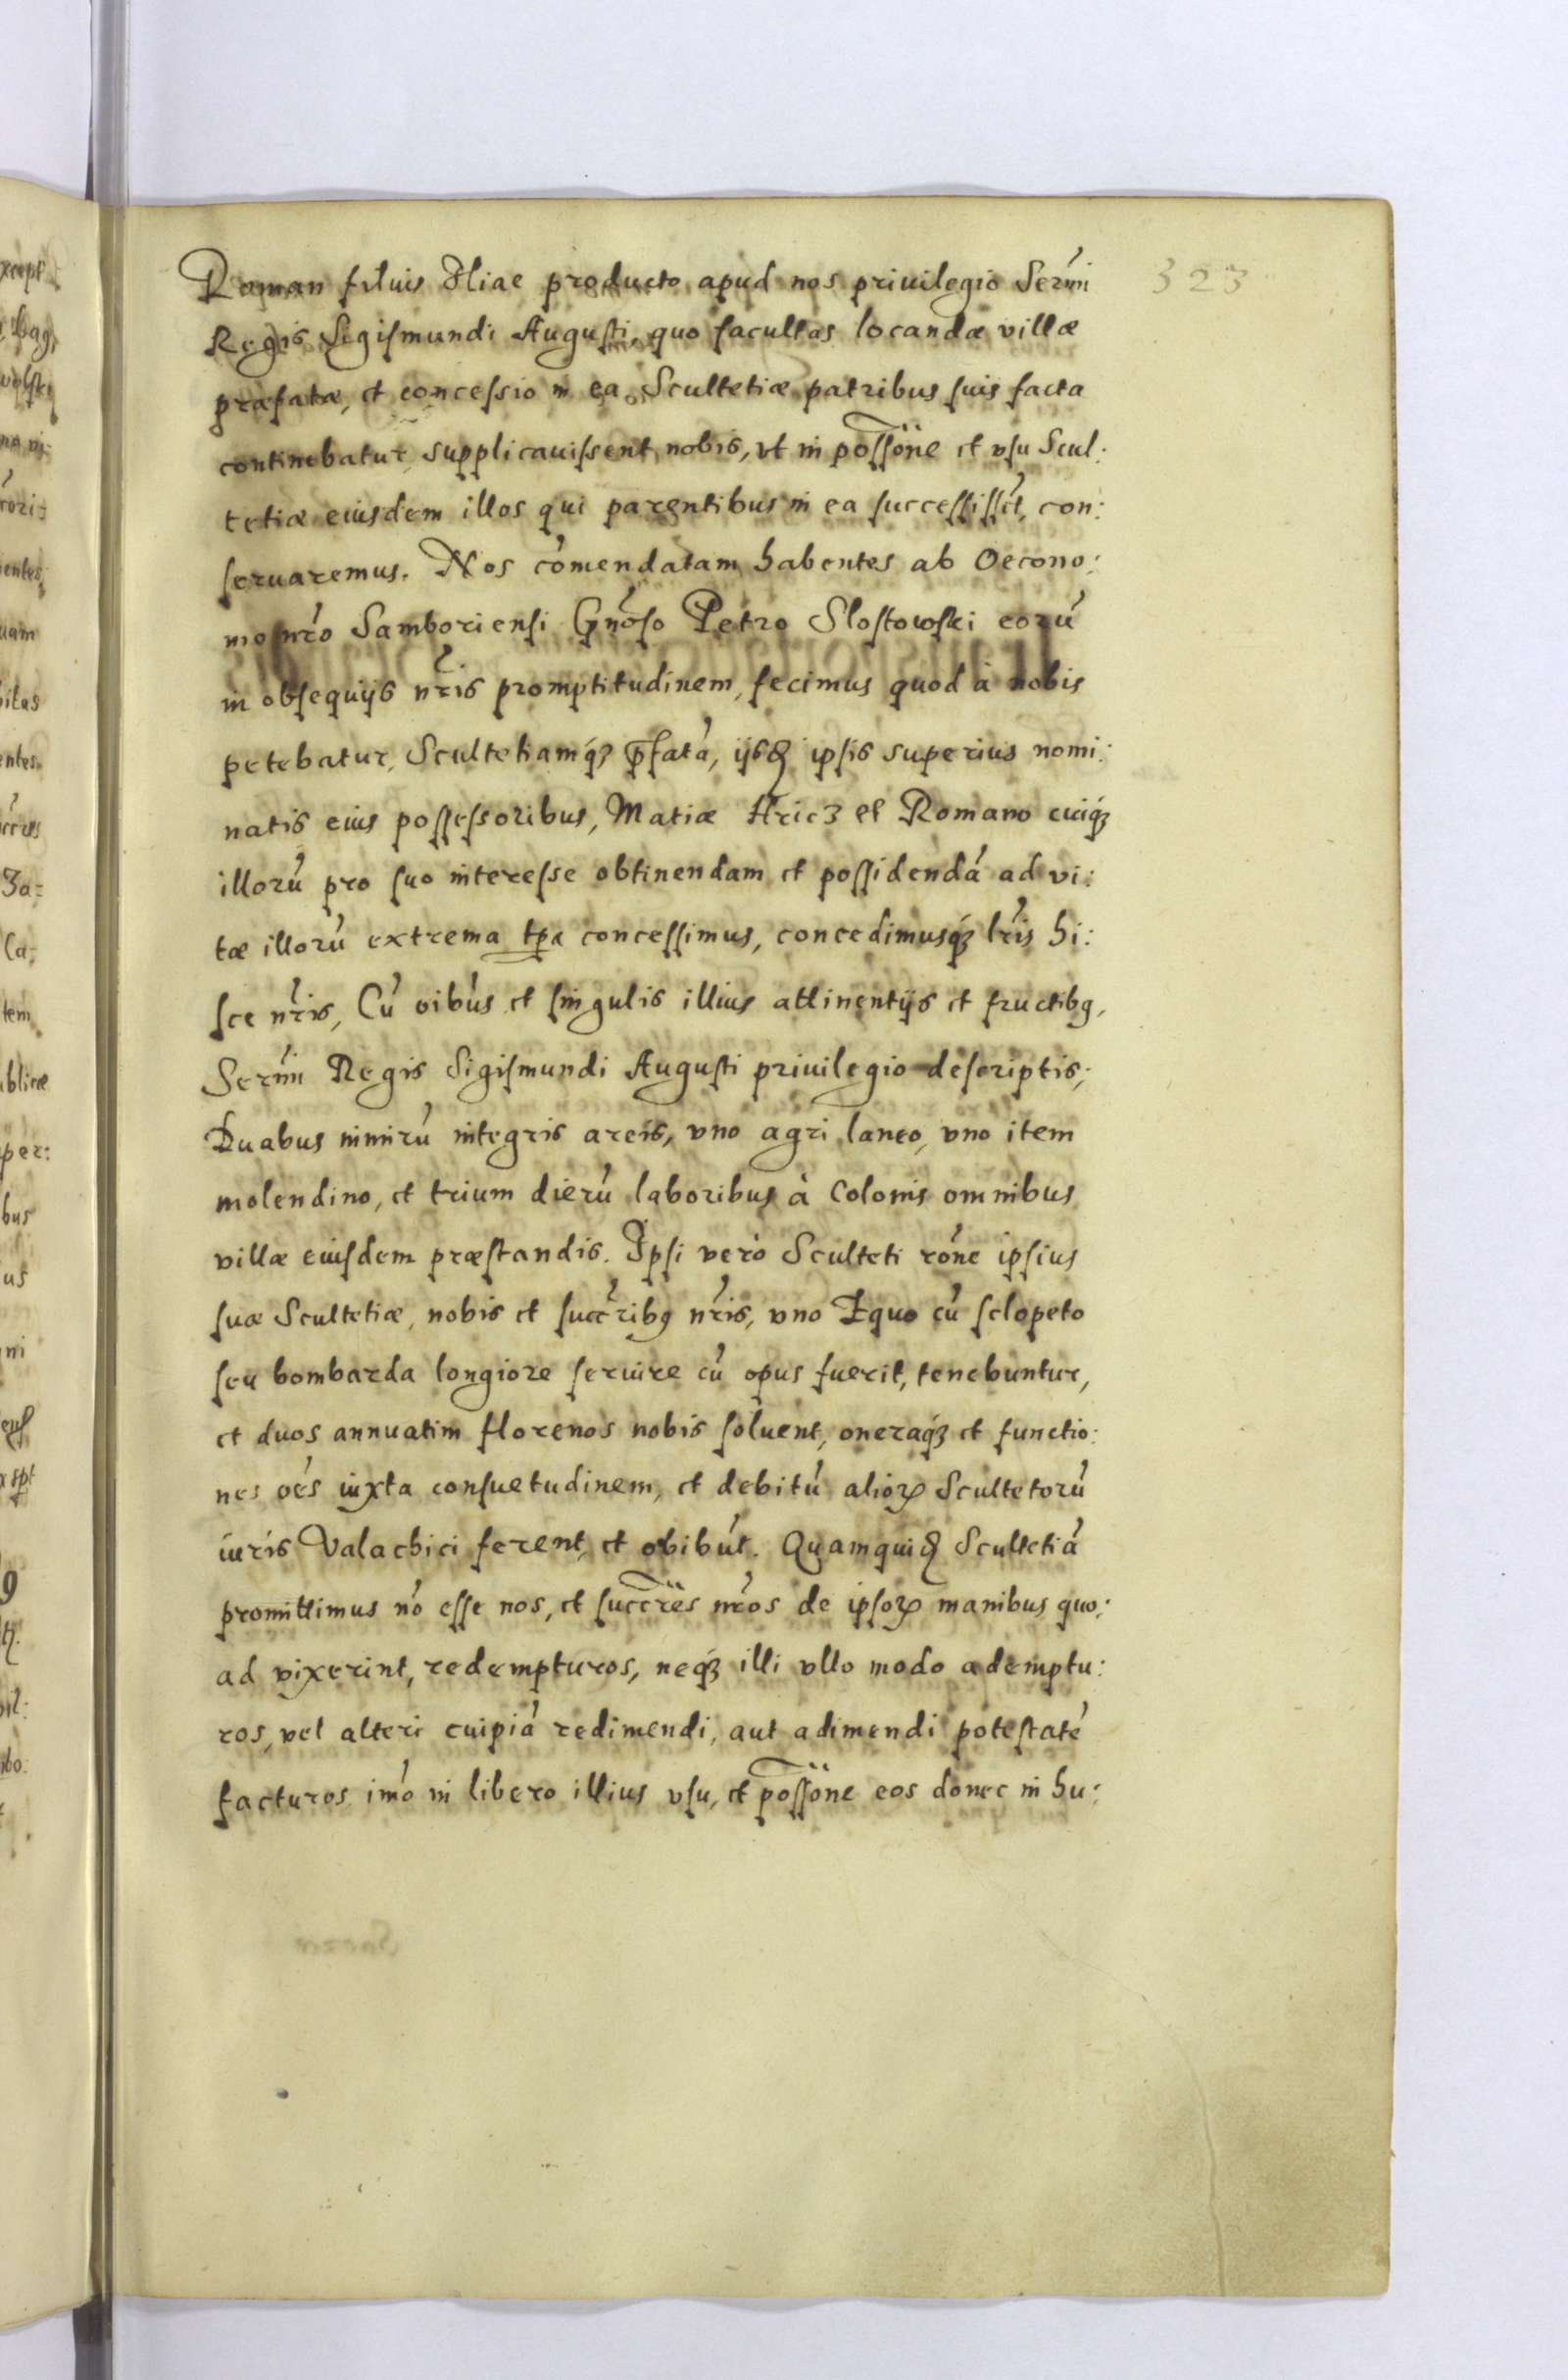 323
Roman filius Iliae producto apud nos priuilegio Serḿi
Regis Sigismundi Augusti, quo facultas locandæ villæ
præfatæ, et concessio in ea Scultetiæ patribus suis facta
continebatur supplicauissent nobis, vt in possõne et vsu Scul:
tetiæ eiusdem illos qui parentibus in ea successissẽt, con:
seruaremus. Nos cõmendatam habentes ab Oecono:
mo nr̃o Samboriensi Gñoso Petro Slostowski eorũ
in obsequijs nr̃is promptitudinem, fecimus quod à nobis
petebatur, Scultetiamq́ꝫ p̃fatã, ijsdẽ ipsis superius nomi:
natis eius possessoribus, Matiæ Hricz et Romano cuiq́ꝫ
illorũ pro suo interesse obtinendam et possidendã ad vi:
tæ illorũ extrema tp̃a concessimus, concedimusq́ꝫ lr̃is hi:
sce nr̃is, Cũ oĩbus et singulis illius attinentijs et fructibꝯ,
Serḿi Regis Sigismundi Augusti priuilegio descriptis;
Duabus nimirũ integris areis, vno agri laneo, vno item
molendino, et trium dierũ laboribus à Colonis omnibus
villæ eiusdem præstandis. Ipsi verò Sculteti rõne ipsius
suæ Scultetiæ, nobis et succr̃ibꝯ nr̃is, vno Equo cũ sclopeto
seu bombarda longiore seruire cũ opus fuerit, tenebuntur,
et duos annuatim florenos nobis soluent, oneraq́ꝫ et functio:
nes oẽs iuxta consuetudinem, et debitũ alioꝝ Scultetorũ
iuris Valachici ferent, et obibũt. Quamquidẽ Scultetiã
promittimus nõ esse nos, et succr̃es nr̃os de ipsoꝝ manibus quo:
ad vixerint, redempturos, neq́ꝫ illi vllo modo ademptu:
ros, vel alteri cuipiã redimendi, aut adimendi potestatẽ
facturos imò in libero illius vsu, et possõne eos donec in hu: